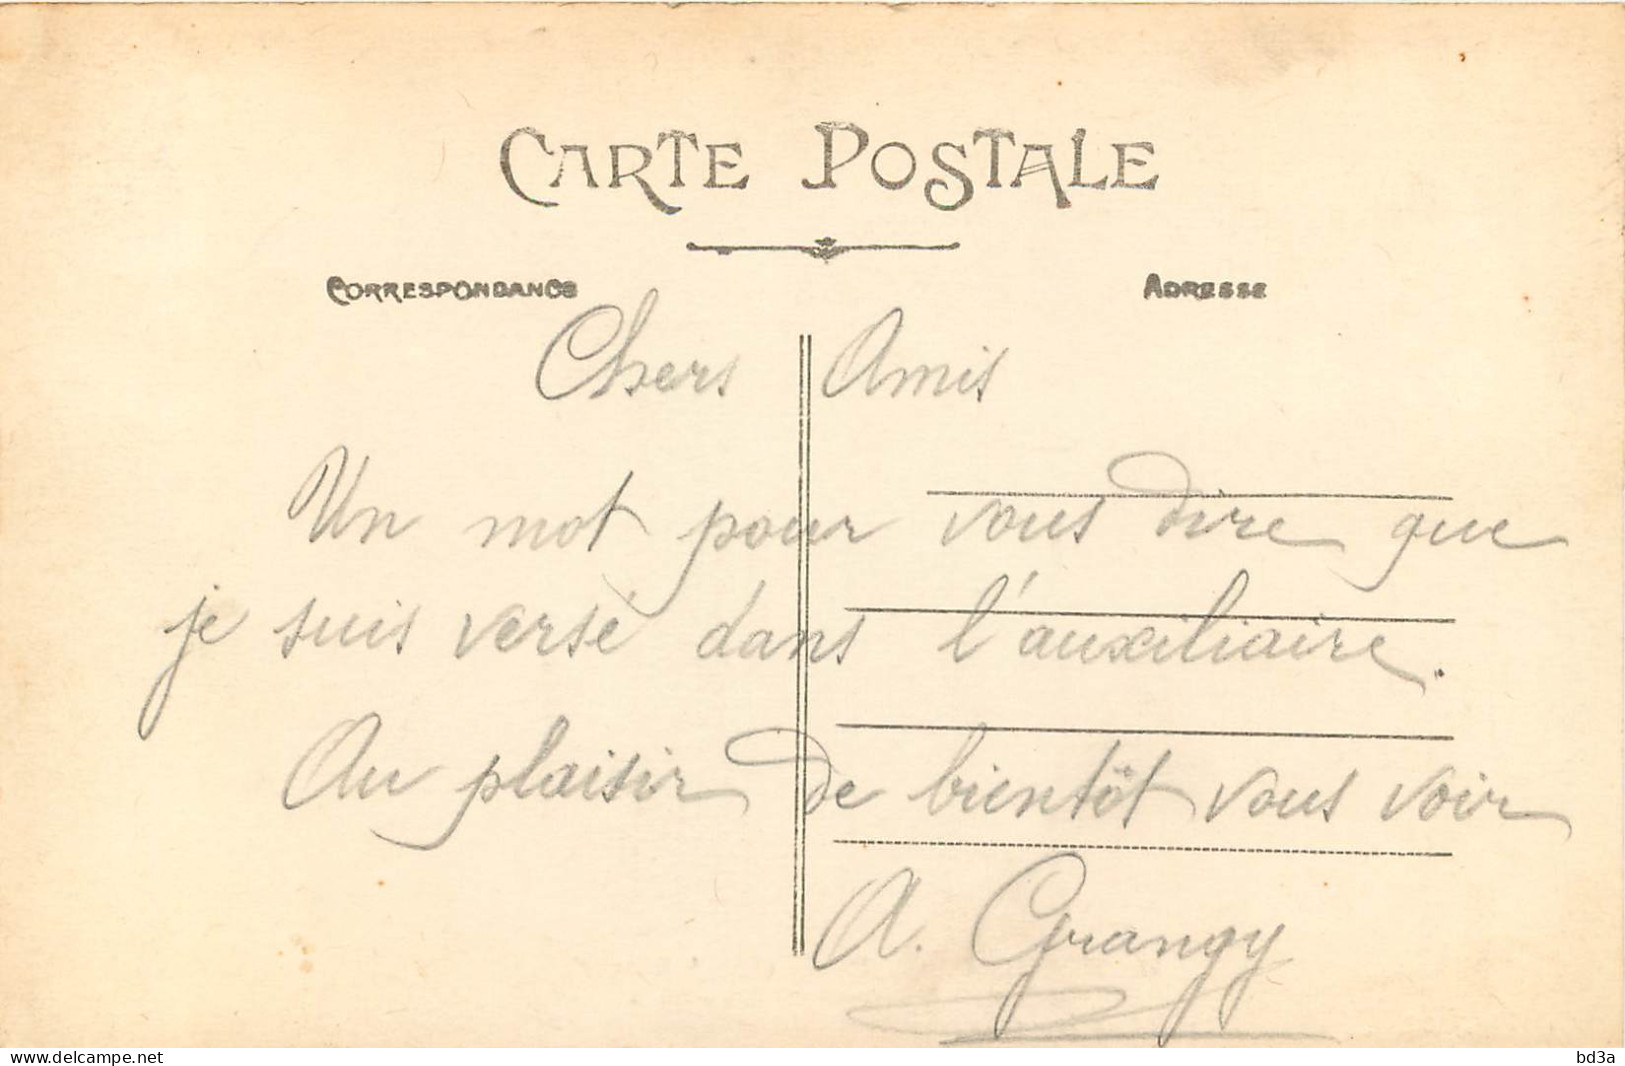 CARTE POSTALE
CORRESPONDANCE
ADRESSE
Chers Amis
Un mot pour vous dire que
je suis versé dans l'auxiliaire.
Au plaisir de bientôt vous voir
A. Grangy
Website : picture-worldwide.delcampe.net
bd3a